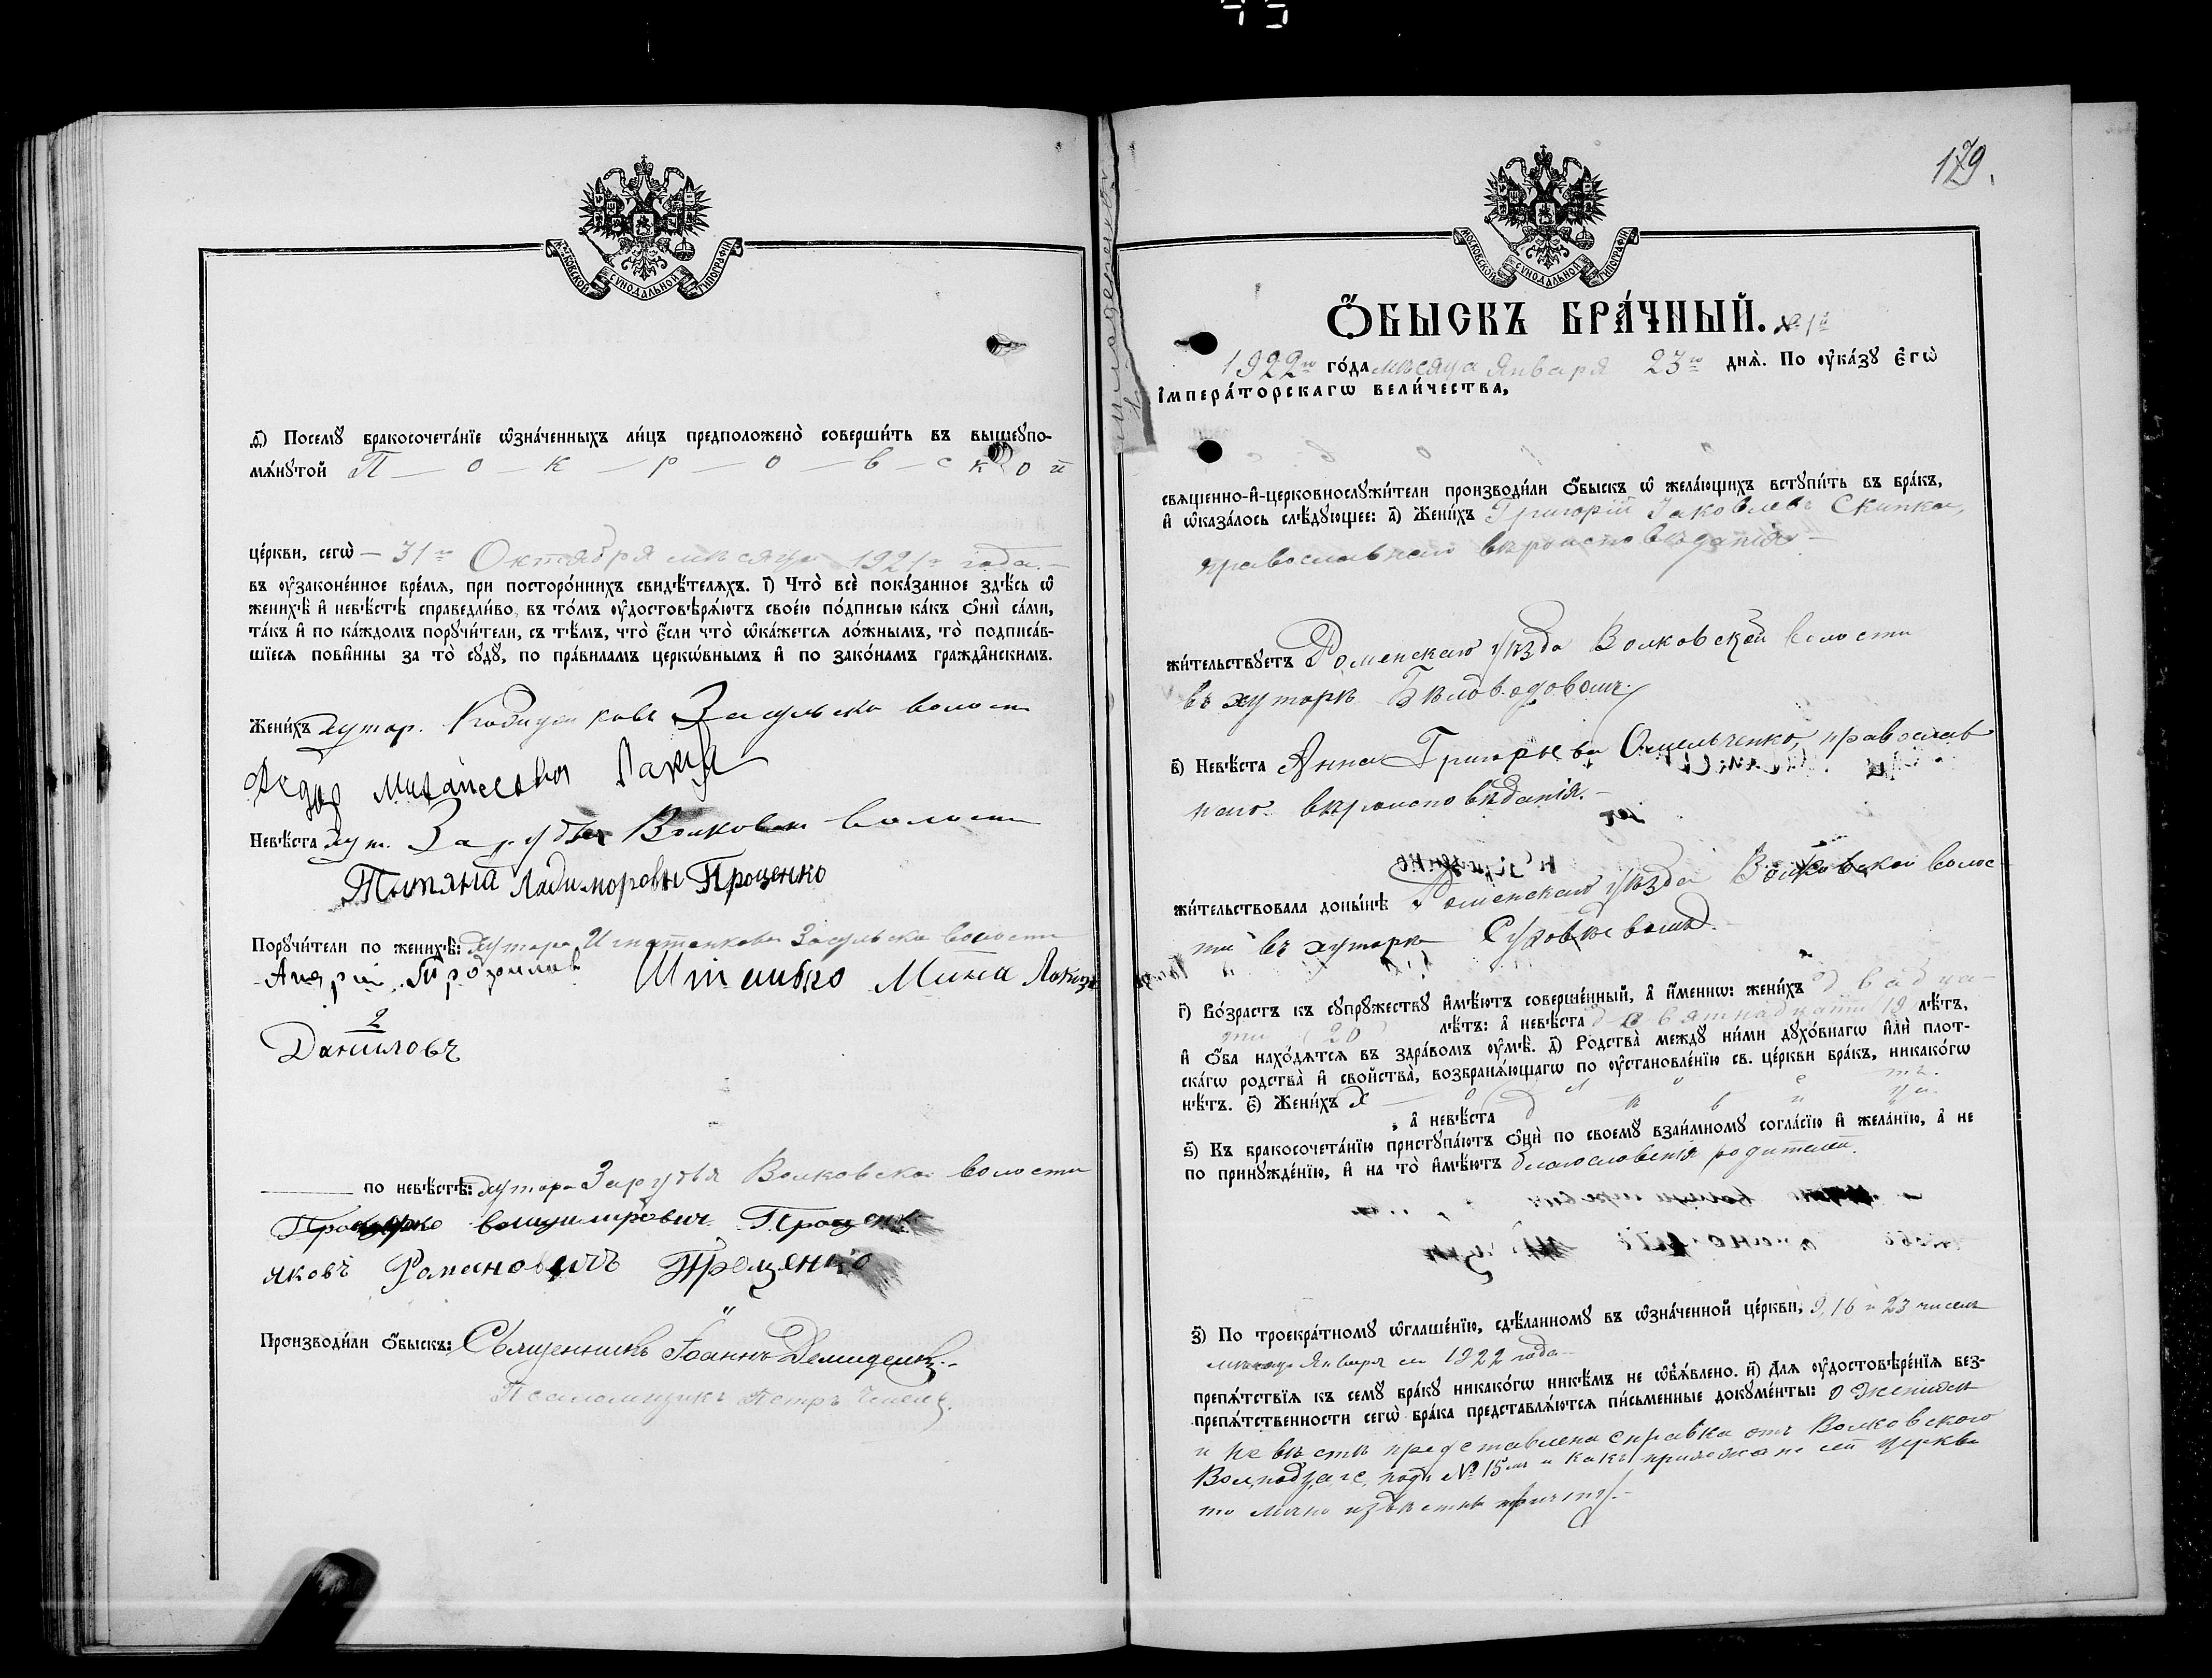 МОСКОВСКОЙ СѴНОДАЛЬНОЙ ТИПОГРАФІИ
д҃) Посемꙋ бракосочета́нїе ѡ҆зна́ченныхъ ли́цъ предположено̀ соверши́ть въ вышеꙋпо-
мѧ́нꙋтой П — о — к — р — о — в — с к о й
це́ркви, сегѡ̀ — 31го Октября мѣсяца 1921го года. —
въ ᲂу҆зако́ненное вре́мѧ, при посторо́ннихъ свидѣ́телѧхъ. і҃) Что̀ всѐ пока́занное здѣ́сь ѡ҆
женихѣ̀ и҆ невѣ́стѣ справедли́во, въ то́мъ ᲂу҆достовѣрѧ́ютъ свое́ю по́дписью ка́къ ѻ҆нѝ са́ми,
та́къ и҆ по ка́ждомъ порꙋчи́тели, съ тѣ́мъ, что̀ є҆́сли что̀ ѡ҆ка́жетсѧ ло́жнымъ, то̀ подписа́в-
шїесѧ пови́нны за то̀ сꙋдꙋ̀, по пра́виламъ церкѡ́внымъ и҆ по зако́намъ гражда́нскимъ.
Жени́хъ хутор. Засульско волости
Федор Михайлович
Невѣ́ста хут. Зарубы Волковской волости
Татяна Ладиморовн Проценко
Порꙋчи́тели по женихѣ̀: хутора Игнатенкова Засульско волости
Андрій Штемько Мина
2
Даниловъ
по невѣ́стѣ: хутора Зарубы Волковской волости
Проценк
Яковъ Романовичъ Проценко
Производи́ли ѻ҆́быскъ: Священникъ Іоаннъ
Псаломщикъ Петръ
179.
МОСКОВСКОЙ СѴНОДАЛЬНОЙ ТИПОГРАФІИ
Ѻ҆́БЫСКЪ БРА́ЧНЫЙ. № 1й
1922го го́да мѣсяца Января 23го днѧ̀. По ᲂу҆ка́зꙋ є҆гѡ̀
і҆мпера́торскагѡ вели́чества,
свѧще́нно-и҆-церковнослꙋжи́тели производи́ли ѻ҆́быскъ ѡ҆ жела́ющихъ встꙋпи́ть въ бра́къ,
и҆ ѡ҆каза́лось слѣ́дꙋющее: а҃) Жени́хъ Григорій Іаковлевъ Скипка,
православнаго вѣроисповѣданія —
жи́тельствꙋетъ Роменскаго уѣзда Волковской волости
въ хуторѣ Бѣловодовомъ.
в҃) Невѣ́ста Анна Григорьева Омельченко, православ
наго вѣроисповѣданія. —
жи́тельствовала доны́нѣ Роменскаго уѣзда Волковской волос
ти въ хуторѣ
г҃) Во́зрастъ къ сꙋпрꙋ́жествꙋ и҆мѣ́ютъ соверше́нный, а҆ и҆́меннѡ: жени́хъ двадца-
ти (20) лѣ́тъ: а҆ невѣ́ста девятнадцати 19 лѣ́тъ,
и҆ ѻ҆́ба нахо́дѧтсѧ въ здра́вомъ ᲂу҆мѣ̀. д҃) Родства̀ междꙋ ни́ми дꙋхо́внагѡ и҆лѝ плот-
ска́гѡ родства̀ и҆ свойства̀, возбранѧ́ющагѡ по ᲂу҆становле́нїю св. це́ркви бра́къ, никако́гѡ
нѣ́тъ. є҃) Жени́хъ х о л о с тъ.
, а҆ невѣ́ста д ѣ в и ца.
ѕ҃) Къ бракосочета́нїю пристꙋпа́ютъ ѻ҆нѝ по своемꙋ̀ взаи́мномꙋ согла́сїю и҆ жела́нїю, а҆ не
по принꙋжде́нїю, и҆ на то̀ и҆мѣ́ютъ благословенія родителей.
з҃) По троекра́тномꙋ ѡ҆глаше́нїю, сдѣ́ланномꙋ въ ѡ҆зна́ченной це́ркви, 9, 16 и 23 чиселъ
мѣсяца Января м 1922 года —
препѧ́тствїѧ къ семꙋ̀ бра́кꙋ никако́гѡ никѣ́мъ не ѡ҆б̾ѧ́влено. и҃) Длѧ ᲂу҆достовѣре́нїѧ без-
препѧ́тственности сегѡ̀ бра́ка представлѧ́ютсѧ пи́сьменные докꙋме́нты: о женихѣ
и невѣстѣ представлена справка отъ Волковскаго
подъ № 15мъ и какъ прихожане сей церкви
то лично извѣстны причту. —